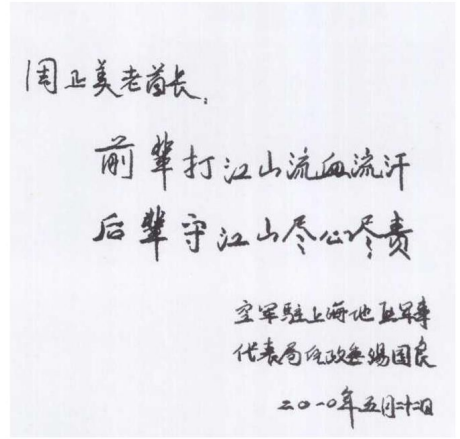 周正美老首长：
前辈打江山流血流汗
后辈守江山尽心尽责
空军驻上海地区军事
代表局 政委 国良
二〇一〇年五月二十二日